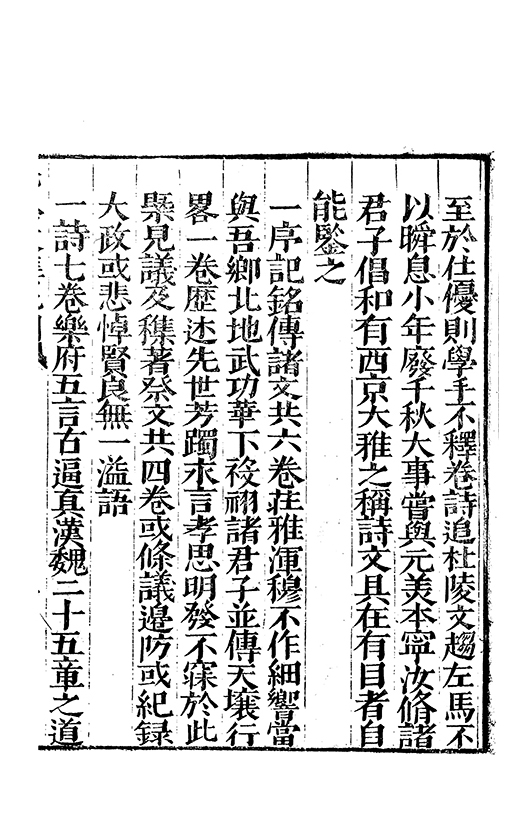 至於仕優則學手不釋卷詩追杜陵文趨左馬不
以瞬息小年廢千秋大事嘗與元美本寧汝脩諸
君子倡和有西京大雅之稱詩文具在有目者自
能鑒之
一序記銘傳諸文共六卷莊雅渾穆不作細響當
與吾鄉北地武功華下祋祤諸君子並傳天壤行
畧一卷歷述先世芳躅永言孝思明發不寐於此
槩見議及襍著祭文共四卷或條議邊防或紀錄
大政或悲悼賢良無一溢語
一詩七卷樂府五言古逼真漢魏二十五章之道